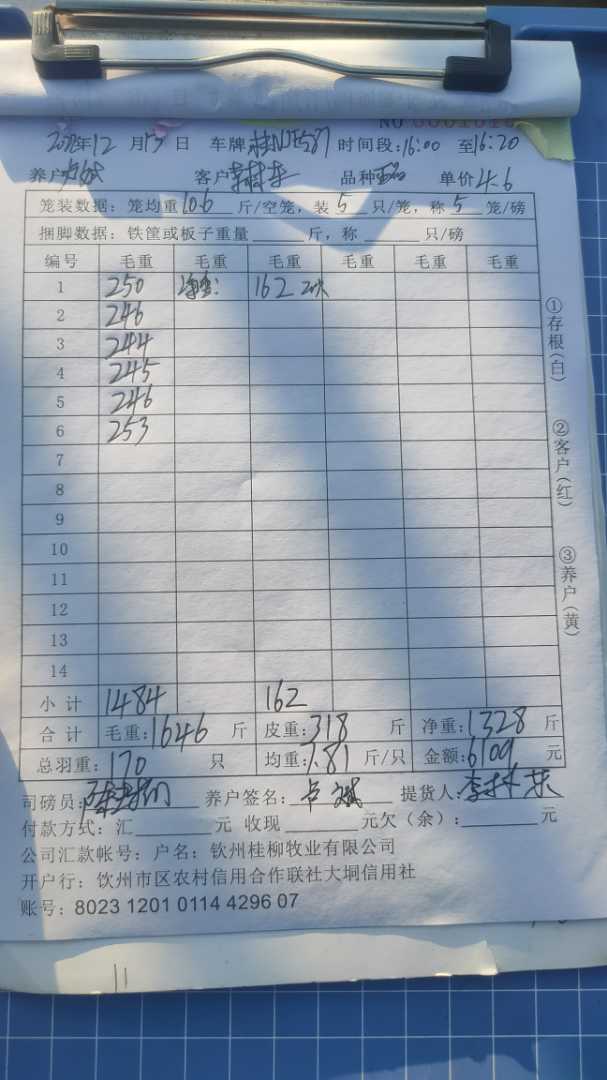 NO 0001010
年12月15日 车牌 时间段:16:00 至16:20
养户 卢斌 客户 李林东 品种 单价 4.6
笼装数据：笼均重 10.6 斤/空笼，装 5 只/笼，称 5 笼/磅
捆脚数据：铁筐或板子重量 斤，称 只/磅
编号 毛重 毛重 毛重 毛重 毛重 毛重
1 250 净重: 162
2 246
3 244
4 245
5 246
6 253
7
8
9
10
11
12
13
14
小 计 1484 162
合 计 毛重:1646 斤 皮重:318 斤 净重:1328 斤
总羽重:170 只 均重:7.81 斤/只 金额:6109 元
司磅员: 养户签名: 卢斌 提货人: 李林东
付款方式：汇 元 收现 元欠（余）: 元
公司汇款帐号：户名：钦州桂柳牧业有限公司
开户行：钦州市区农村信用合作联社大垌信用社
账号：8023 1201 0114 4296 07
①存根(白)
②客户(红)
③养户(黄)
11